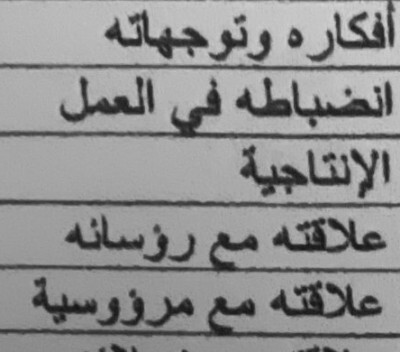 أفكاره وتوجهاته
انضباطه في العمل
الإنتاجية
علاقته مع رؤسائه
علاقته مع مرؤوسية